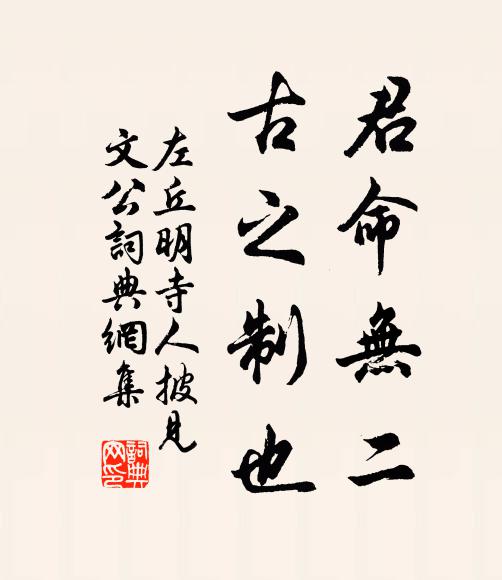 君命無二
古之制也
左丘明寺人披見
文公詞典網集
詞典網印